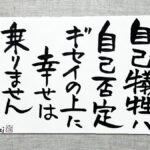 自己犠牲ハ
自己否定
ギセイの上に
幸せは
乗りません